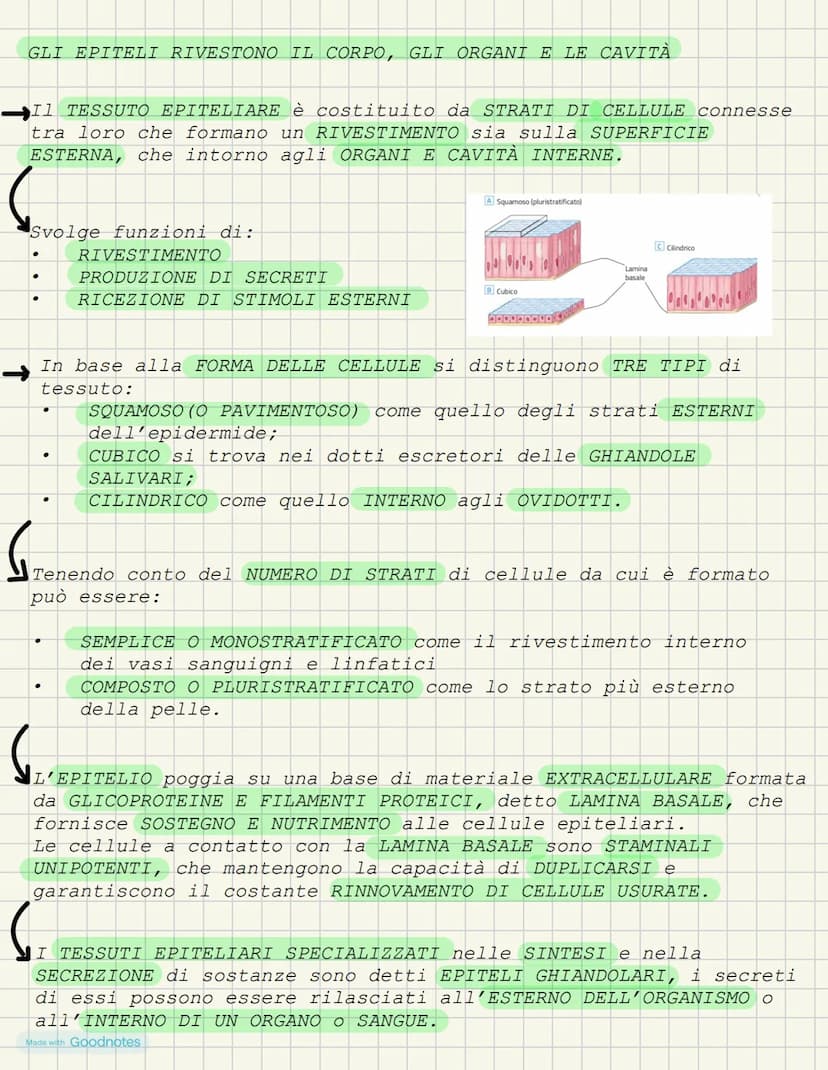 GLI EPITELI RIVESTONO IL CORPO, GLI ORGANI E LE CAVITÀ
Il TESSUTO EPITELIARE è costituito da STRATI DI CELLULE connesse
tra loro che formano un RIVESTIMENTO sia sulla SUPERFICIE
ESTERNA, che intorno agli ORGANI E CAVITÀ INTERNE.
Svolge funzioni di:
• RIVESTIMENTO
• PRODUZIONE DI SECRETI
• RICEZIONE DI STIMOLI ESTERNI
A Squamoso (pluristratificato)
B Cubico
Lamina
basale
C Cilindrico
In base alla FORMA DELLE CELLULE si distinguono TRE TIPI di
tessuto:
• SQUAMOSO(O PAVIMENTOSO) come quello degli strati ESTERNI
dell'epidermide;
• CUBICO si trova nei dotti escretori delle GHIANDOLE
SALIVARI;
• CILINDRICO come quello INTERNO agli OVIDOTTI.
Tenendo conto del NUMERO DI STRATI di cellule da cui è formato
può essere:
• SEMPLICE O MONOSTRATIFICATO come il rivestimento interno
dei vasi sanguigni e linfatici
• COMPOSTO O PLURISTRATIFICATO come lo strato più esterno
della pelle.
L'EPITELIO poggia su una base di materiale EXTRACELLULARE formata
da GLICOPROTEINE E FILAMENTI PROTEICI, detto LAMINA BASALE, che
fornisce SOSTEGNO E NUTRIMENTO alle cellule epiteliari.
Le cellule a contatto con la LAMINA BASALE sono STAMINALI
UNIPOTENTI, che mantengono la capacità di DUPLICARSI e
garantiscono il costante RINNOVAMENTO DI CELLULE USURATE.
I TESSUTI EPITELIARI SPECIALIZZATI nelle SINTESI e nella
SECREZIONE di sostanze sono detti EPITELI GHIANDOLARI, i secreti
di essi possono essere rilasciati all'ESTERNO DELL'ORGANISMO o
all'INTERNO DI UN ORGANO o SANGUE.
Made with Goodnotes